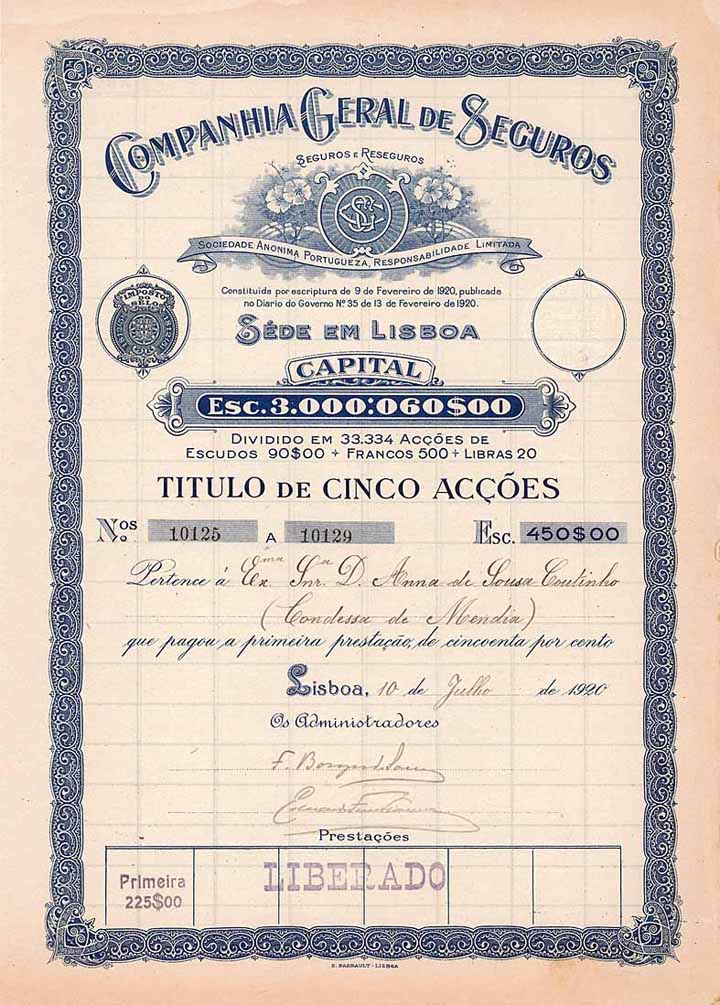 COMPANHIA GERAL DE SEGUROS
SEGUROS E RESEGUROS
SOCIEDADE ANONIMA PORTUGUEZA, RESPONSABILIDADE LIMITADA
Constituida por escriptura de 9 de Fevereiro de 1920, publicada
no Diario do Governo Nº 35 de 13 de Fevereiro de 1920.
IMPOSTO DO SELO
SÉDE EM LISBOA
CAPITAL
ESC. 3.000:060$00
DIVIDIDO EM 33.334 ACÇÕES DE
ESCUDOS 90$00 + FRANCOS 500 + LIBRAS 20
TITULO DE CINCO ACÇÕES
Nos. 10125 A 10129 Esc. 450$00
Pertence á Exma Snra D. Anna de Sousa Coutinho
(Condessa de Mendia)
que pagou a primeira prestação, de cincoenta por cento
Lisboa, 10 de Julho de 1920
Os Administradores
Prestações
Primeira
225$00
LIBERADO
LISBOA